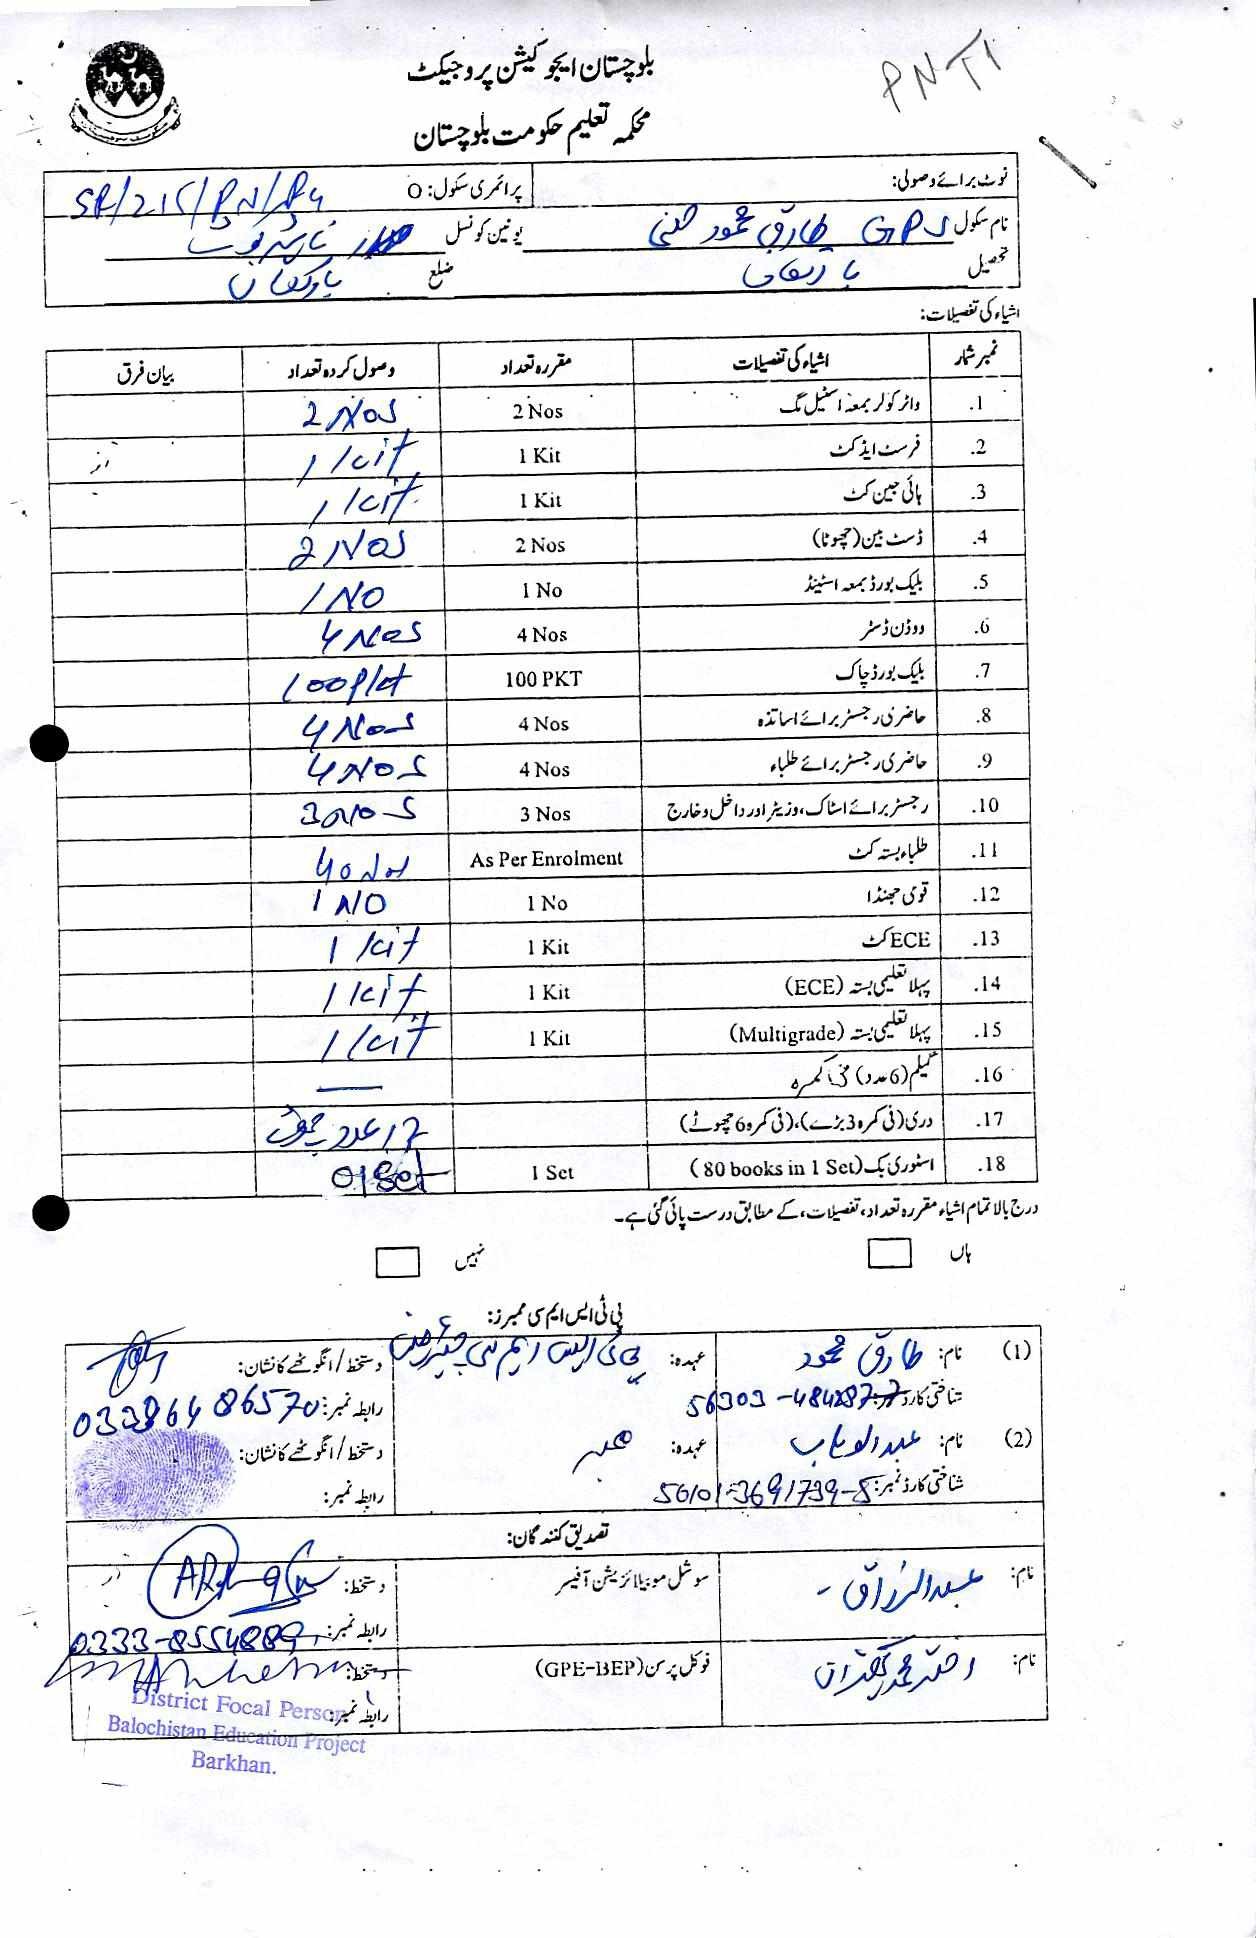 PNT1
بلوچستان ایجوکیشن پروجیکٹ
محکمہ تعلیم حکومت بلوچستان
نوٹ برائے وصولی: پرائمری سکول: O SR/215/PN/P4
نام سکول GPS طارق محمود یونین کونسل
تحصیل ضلع بارکھان
اشیاء کی تفصیلات:
نمبر شمار اشیاء کی تفصیلات مقررہ تعداد وصول کردہ تعداد بیان فرق
1. واٹر کولر بمعہ اسٹیل مگ 2 Nos 2 Nos
2. فرسٹ ایڈ کٹ 1 Kit 1 Kit
3. ہائی جین کٹ 1 Kit 1 Kit
4. ڈسٹ بین (چھوٹا) 2 Nos 2 Nos
5. بلیک بورڈ بمعہ اسٹینڈ 1 No 1 NO
6. ووڈن ڈسٹر 4 Nos 4 Nos
7. بلیک بورڈ چاک 100 PKT 100 Pkt
8. حاضری رجسٹر برائے اساتذہ 4 Nos 4 Nos
9. حاضری رجسٹر برائے طلباء 4 Nos 4 NOS
10. رجسٹر برائے اسٹاک، وزیٹر اور داخل و خارج 3 Nos 3 NOS
11. طلباء بستہ کٹ As Per Enrolment 40 Nos
12. قومی جھنڈا 1 No 1 NO
13. ECE کٹ 1 Kit 1 Kit
14. پہلا تعلیمی بستہ (ECE) 1 Kit 1 Kit
15. پہلا تعلیمی بستہ (Multigrade) 1 Kit 1 Kit
16. گلیم (6 عدد) فی کمرہ —
17. دری (فی کمرہ 3 بڑے)، (فی کمرہ 6 چھوٹے) 12 عدد چھوٹے
18. اسٹوری بک (80 books in 1 Set) 1 Set 01 Set
درج بالا تمام اشیاء مقررہ تعداد، تفصیلات، کے مطابق درست پائی گئی ہے۔
ہاں نہیں
پی ٹی ایس ایم سی ممبرز:
(1) نام: طارق محمود عہدہ: پی ٹی ایس ایم سی چیئرمین دستخط / انگوٹھے کا نشان:
شناختی کارڈ نمبر: رابطہ نمبر:
(2) نام: عبدالوہاب عہدہ: ممبر دستخط / انگوٹھے کا نشان:
شناختی کارڈ نمبر: 56101-3691739-5 رابطہ نمبر:
تصدیق کنندگان:
نام: عبدالرزاق سوشل موبیلائزیشن آفیسر دستخط:
رابطہ نمبر: 0333-8554889
نام: اختر محمد کھتران فوکل پرسن (GPE-BEP) دستخط:
رابطہ نمبر:
District Focal Person
Balochistan Education Project
Barkhan.